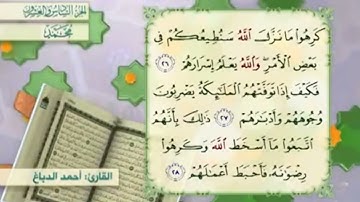 الجزء السادس والعشرون
محمد
كَرِهُوا۟ مَا نَزَّلَ ٱللَّهُ سَنُطِيعُكُمْ فِى
بَعْضِ ٱلْأَمْرِ وَٱللَّهُ يَعْلَمُ إِسْرَارَهُمْ ٢٦
فَكَيْفَ إِذَا تَوَفَّتْهُمُ ٱلْمَلَٰٓئِكَةُ يَضْرِبُونَ
وُجُوهَهُمْ وَأَدْبَٰرَهُمْ ٢٧ ذَٰلِكَ بِأَنَّهُمُ
ٱتَّبَعُوا۟ مَآ أَسْخَطَ ٱللَّهَ وَكَرِهُوا۟
رِضْوَٰنَهُۥ فَأَحْبَطَ أَعْمَٰلَهُمْ ٢٨
القارئ: أحمد الدباغ